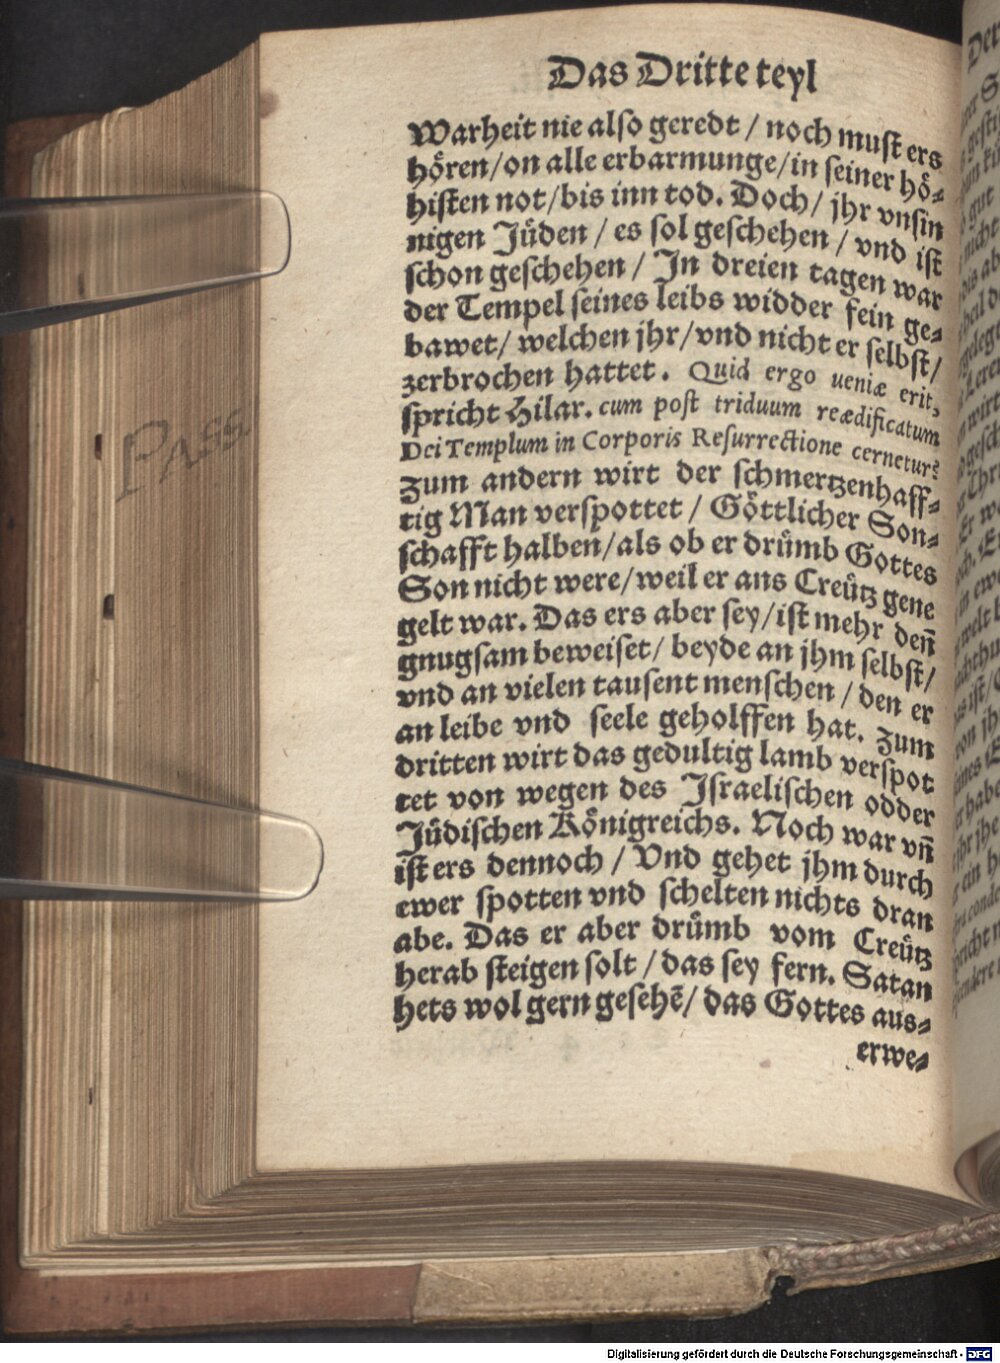 Das Dritte teyl
Warheit nie also geredt / noch must ers
hören/on alle erbarmunge/in seiner hö-
histen not/bis inn tod. Doch/ jhr vnsin
nigen Jüden / es sol geschehen / vnd ist
schon geschehen / In dreien tagen war
der Tempel seines leibs widder fein ge-
bawet/ welchen jhr/vnd nicht er selbst/
zerbrochen hattet. Quid ergo ueniæ erit,
spricht Hilar. cum post triduum reædificatum
Dei Templum in Corporis Resurrectione cernetur?
Zum andern wirt der schmertzenhaff-
tig Man verspottet / Göttlicher Son-
schafft halben/als ob er drümb Gottes
Son nicht were/weil er ans Creütz gene
gelt war. Das ers aber sey/ist mehr deñ
gnugsam beweiset/ beyde an jhm selbst/
vnd an vielen tausent menschen / den er
an leibe vnd seele geholffen hat. Zum
dritten wirt das gedultig lamb verspot
tet von wegen des Israelischen odder
Jüdischen Königreichs. Noch war vñ
ist ers dennoch / Vnd gehet jhm durch
ewer spotten vnd schelten nichts dran
abe. Das er aber drümb vom Creütz
herab steigen solt / das sey fern. Satan
hets wol gern gesehẽ/ das Gottes aus-
erwe-
PASS.
Digitalisierung gefördert durch die Deutsche Forschungsgemeinschaft - DFG